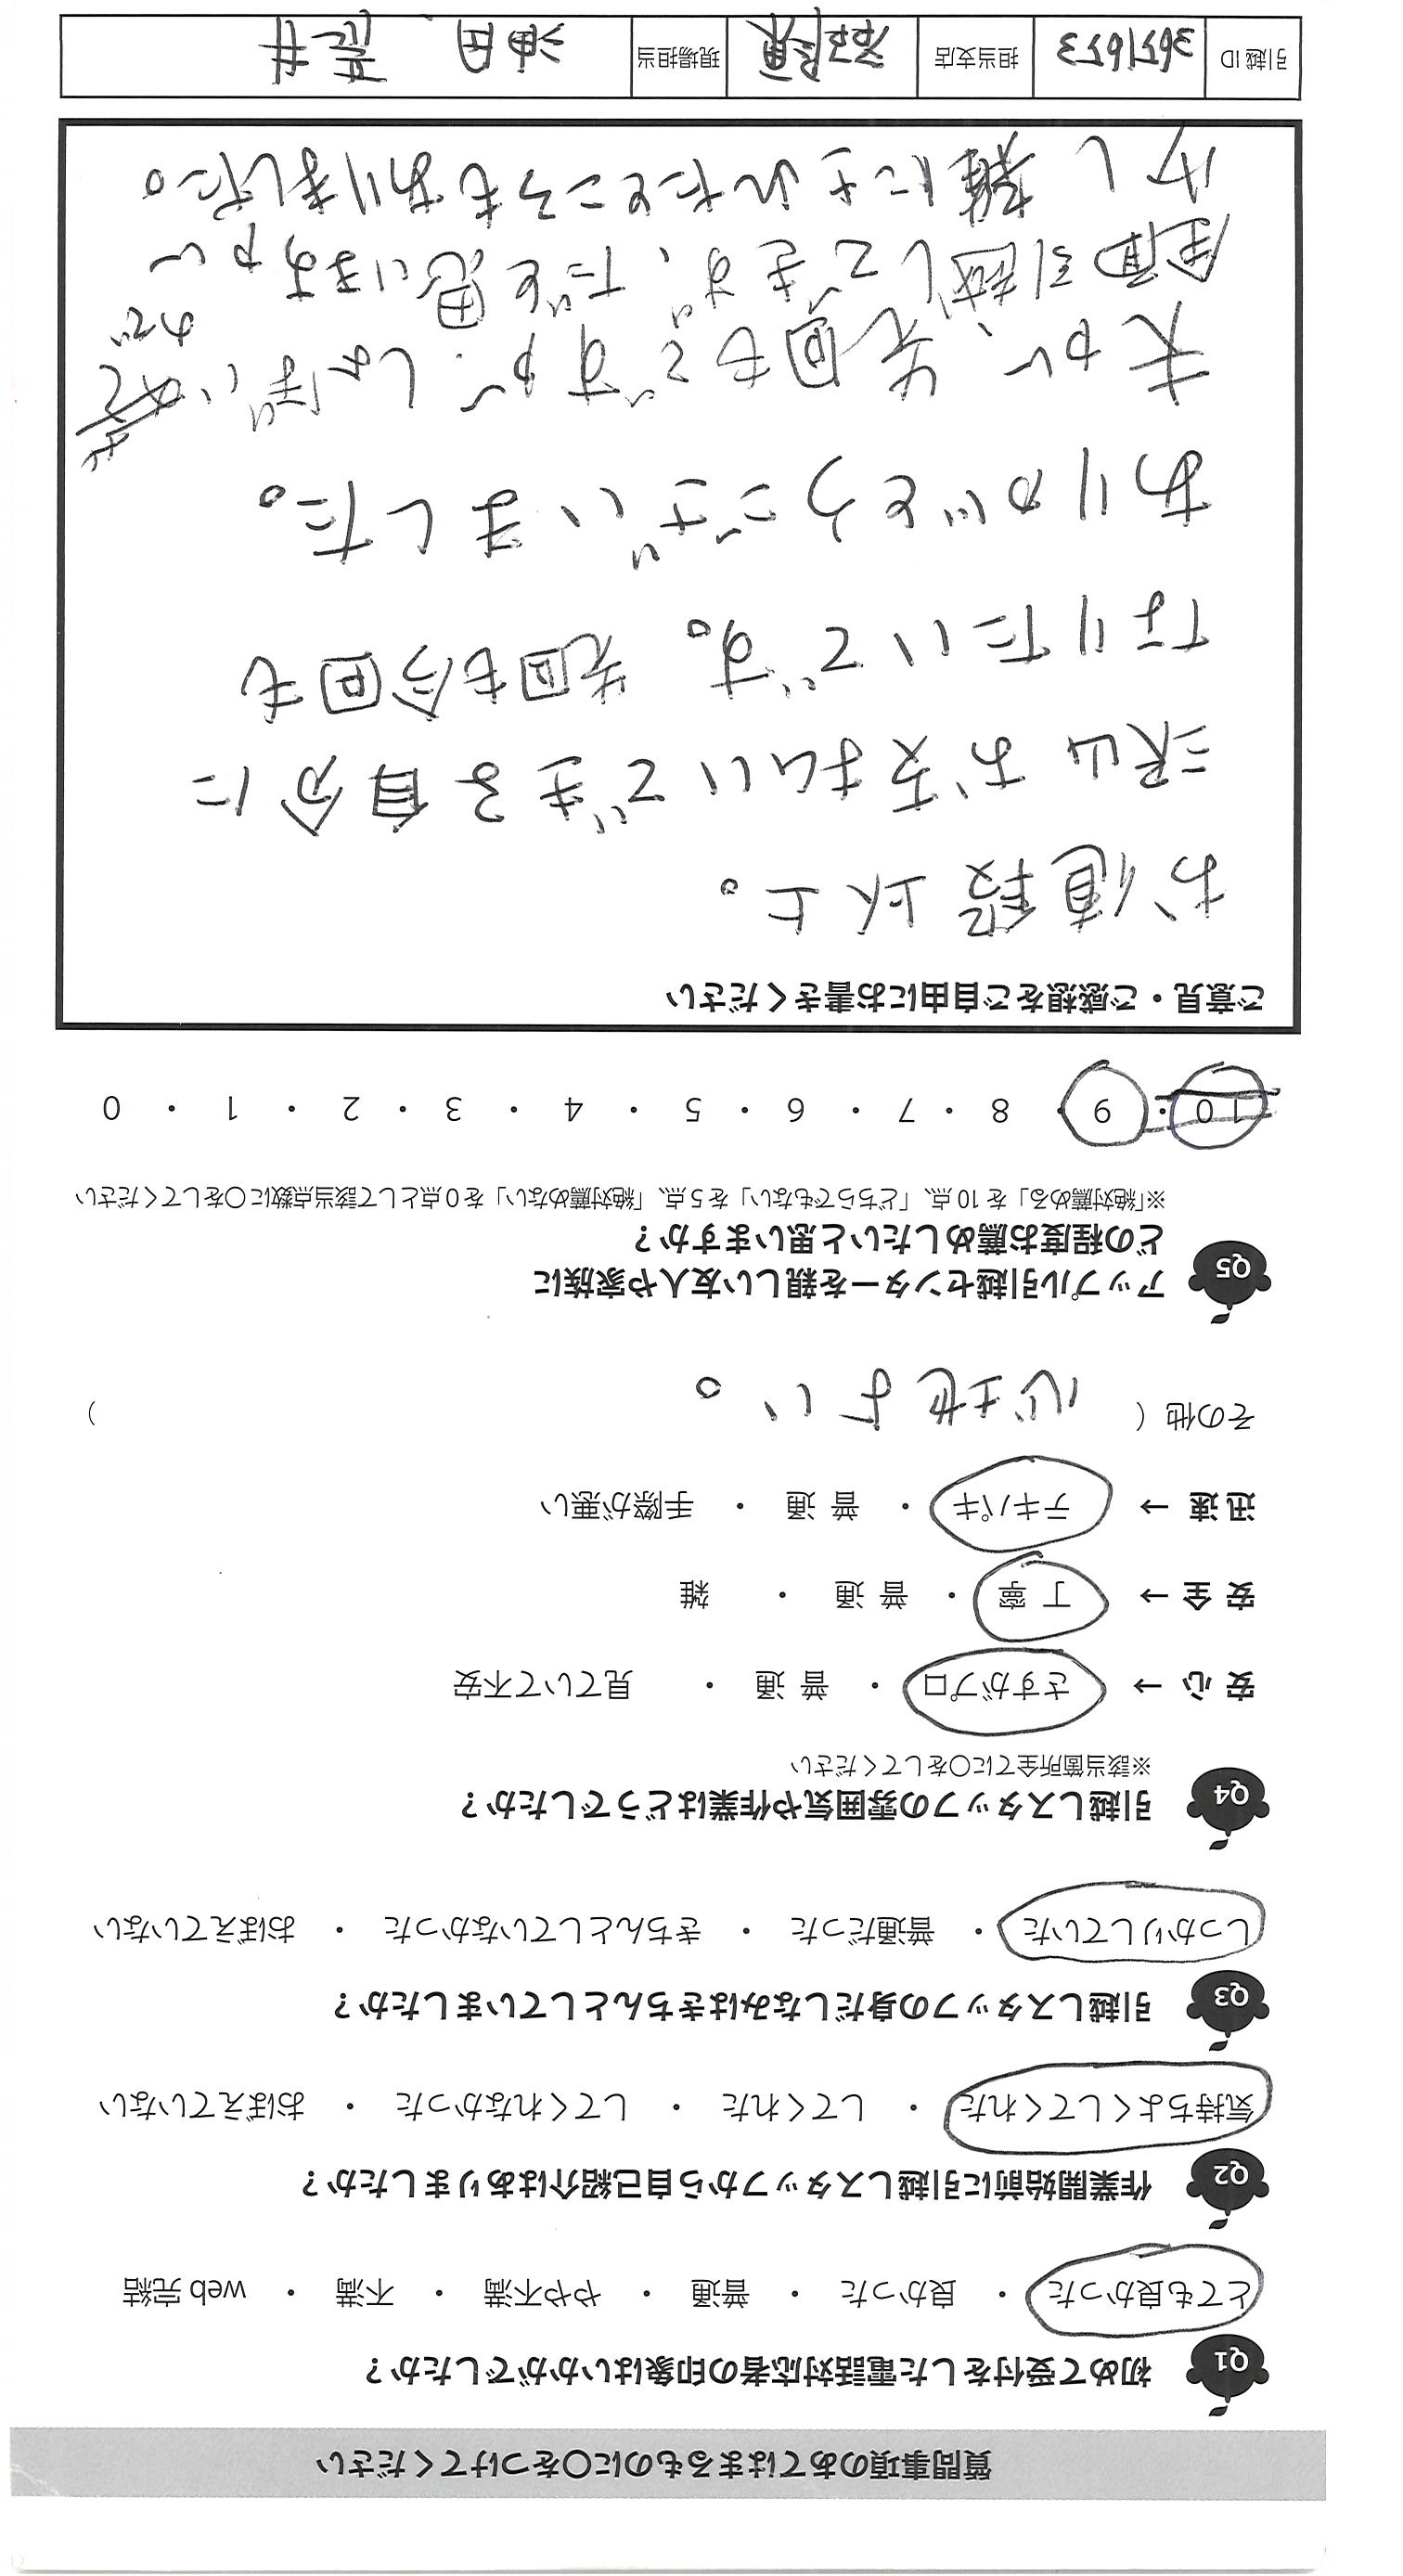 質問事項のあてはまるものに○をつけてください
Q1 初めて受付をした電話対応者の印象はいかがでしたか？
とても良かった ・ 良かった ・ 普通 ・ やや不満 ・ 不満 ・ web 完結
Q2 作業開始前に引越しスタッフから自己紹介はありましたか？
気持ちよくしてくれた ・ してくれた ・ してくれなかった ・ おぼえていない
Q3 引越しスタッフの身だしなみはきちんとしていましたか？
しっかりしていた ・ 普通だった ・ きちんとしていなかった ・ おぼえていない
Q4 引越しスタッフの雰囲気や作業はどうでしたか？
※該当箇所全てに○をしてください
安 心 → さすがプロ ・ 普 通 ・ 見ていて不安
安 全 → 丁 寧 ・ 普 通 ・ 雑
迅 速 → テキパキ ・ 普 通 ・ 手際が悪い
その他（ 心地よい。 ）
Q5 アップル引越センターを親しい友人や家族に
どの程度お薦めしたいと思いますか？
※「絶対薦める」を 10 点、「どちらでもない」を 5 点、「絶対薦めない」を 0 点として該当点数に○をしてください
10 ・ 9 ・ 8 ・ 7 ・ 6 ・ 5 ・ 4 ・ 3 ・ 2 ・ 1 ・ 0
ご意見・ご感想をご自由にお書きください
お値段以上。
沢山お支払いできる自分に
なりたいです。先回も今回も
ありがとうございました。
夫が、先回もですが、しょぼい
引越しできす、だと思いますが
少し雑にされたところもありました。
引越 ID 3651653 担当支店 現場担当 油田、荒井